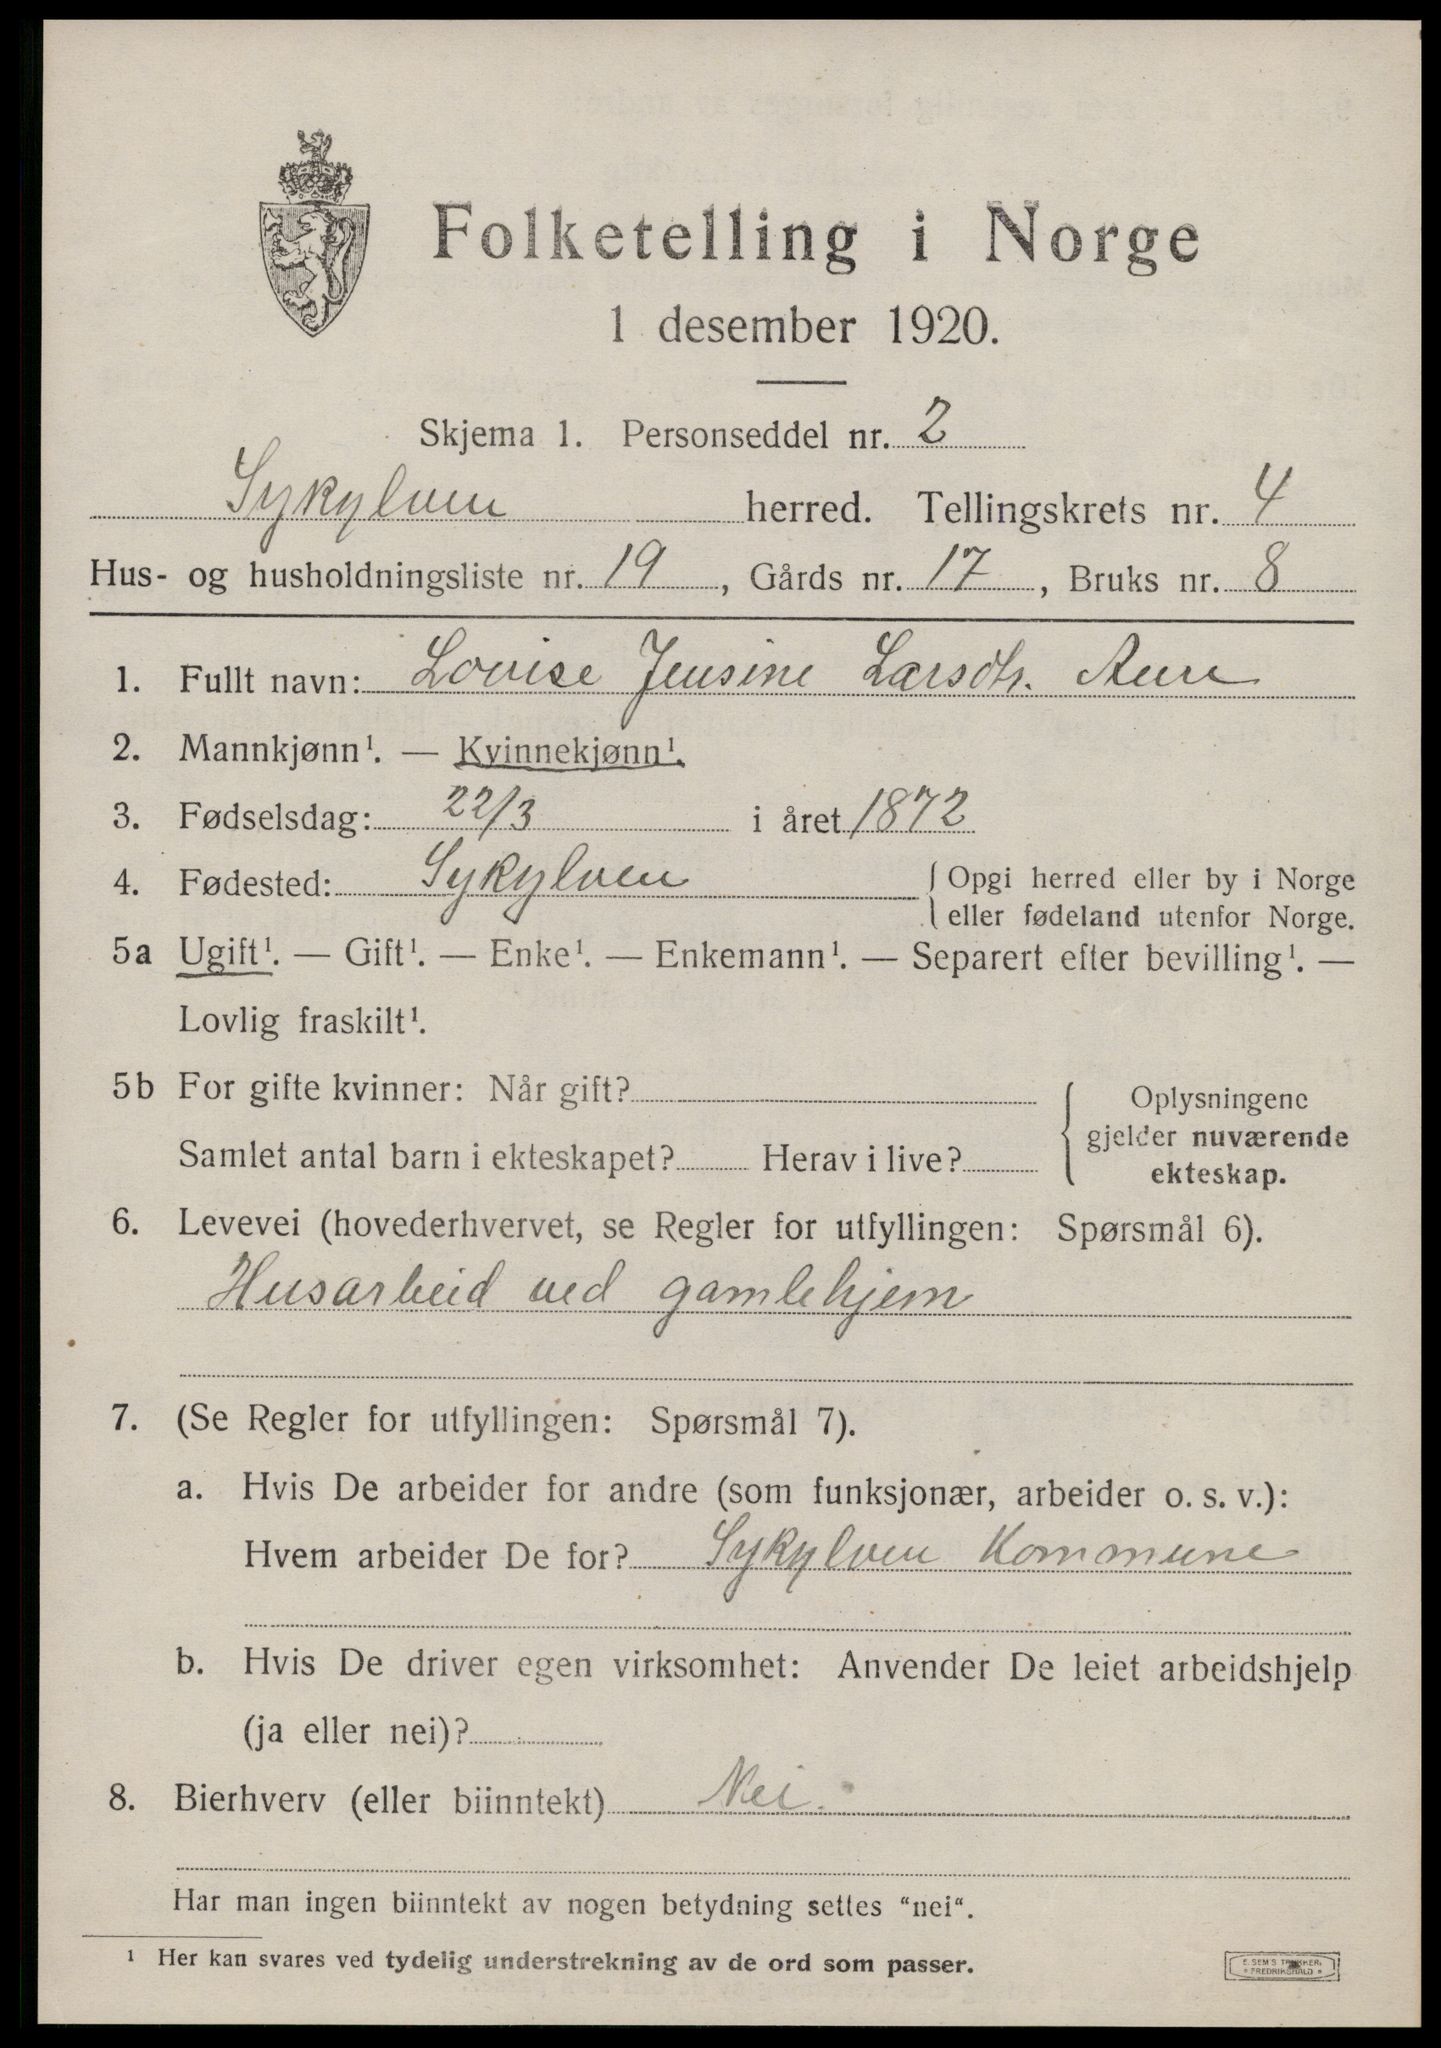 Folketelling i Norge
1 desember 1920.
Skjema 1. Personseddel nr. 2
Sykylven herred. Tellingskrets nr. 4
Hus- og husholdningsliste nr. 19, Gårds nr. 17, Bruks nr. 8
1. Fullt navn: Lovise Jensine Larsdtr. Aure
2. Mannkjønn¹. — Kvinnekjønn¹.
3. Fødselsdag: 22/3 i året 1872
4. Fødested: Sykylven { Opgi herred eller by i Norge
eller fødeland utenfor Norge.
5a Ugift¹. — Gift¹. — Enke¹. — Enkemann¹. — Separert efter bevilling¹. —
Lovlig fraskilt¹.
5b For gifte kvinner: Når gift? { Oplysningene
gjelder nuværende
Samlet antal barn i ekteskapet? Herav i live? ekteskap.
6. Levevei (hovederhvervet, se Regler for utfyllingen: Spørsmål 6).
Husarbeid ved gamlehjem
7. (Se Regler for utfyllingen: Spørsmål 7).
a. Hvis De arbeider for andre (som funksjonær, arbeider o. s. v.):
Hvem arbeider De for? Sykylven Kommune
b. Hvis De driver egen virksomhet: Anvender De leiet arbeidshjelp
(ja eller nei)?
8. Bierhverv (eller biinntekt) Nei.
Har man ingen biinntekt av nogen betydning settes “nei“.
¹ Her kan svares ved tydelig understrekning av de ord som passer.
E. SEM'S TRYKKERI
FREDRIKSHALD